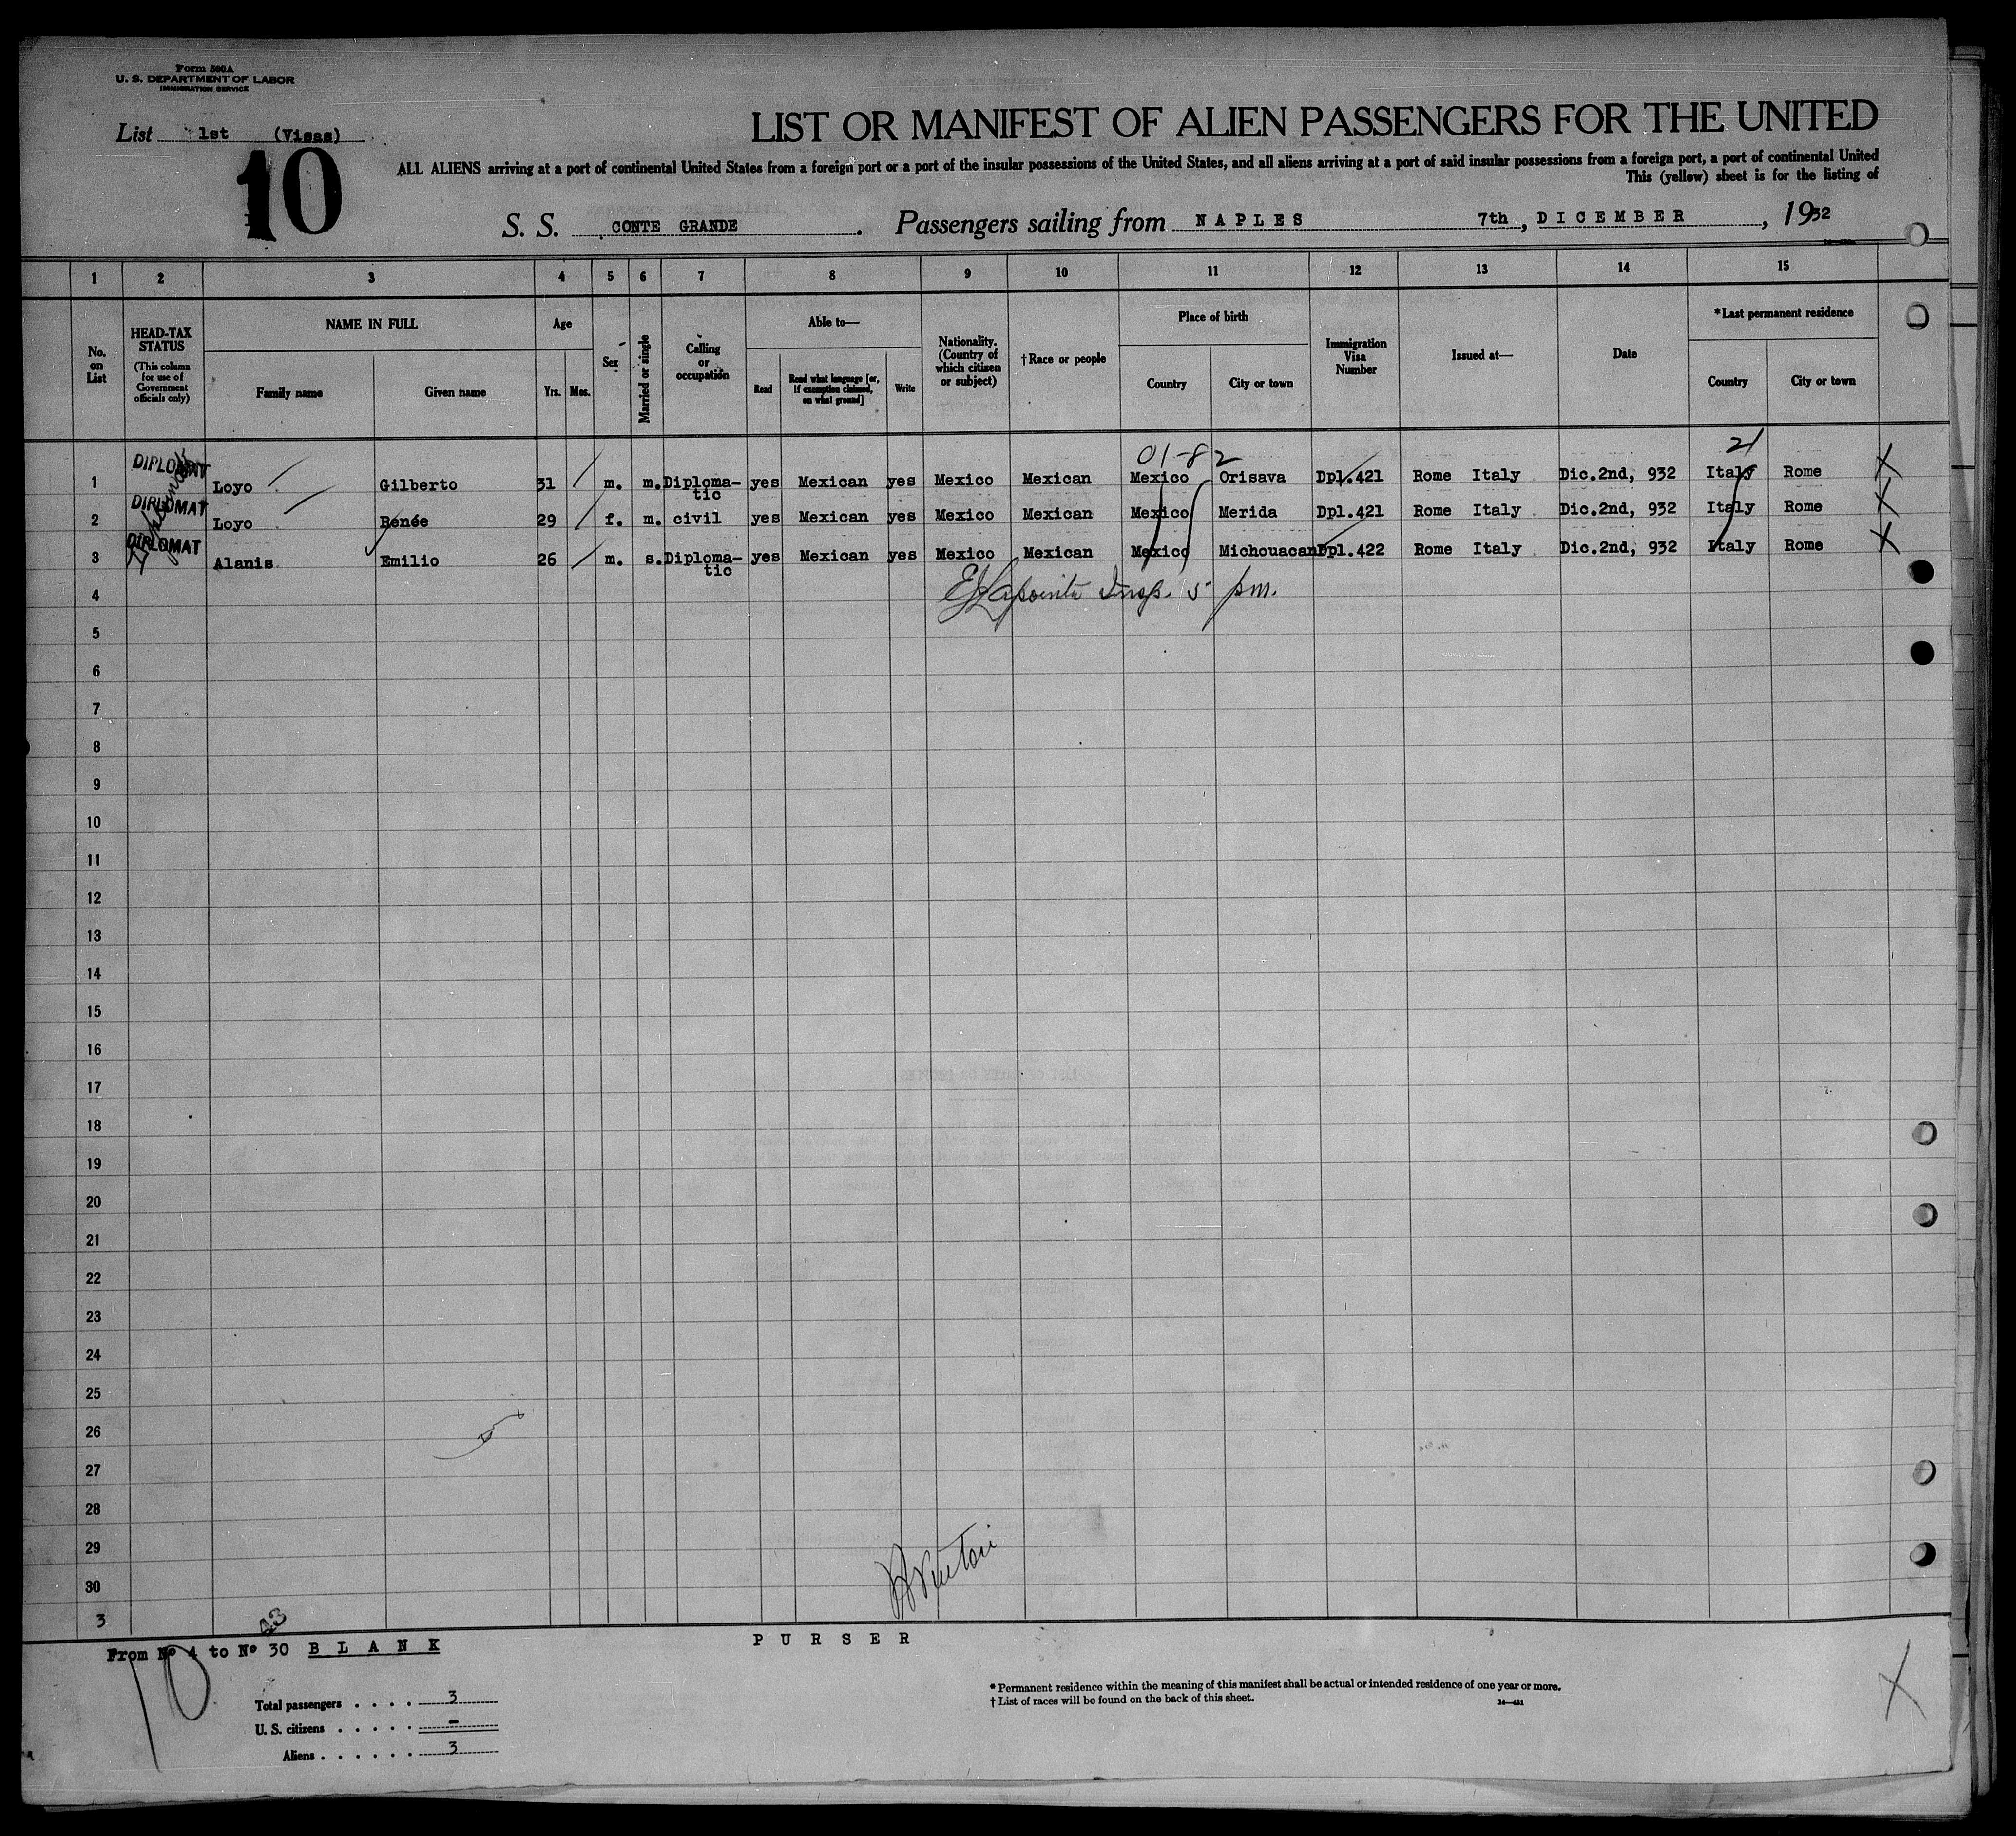 Form 500A
U. S. DEPARTMENT OF LABOR
IMMIGRATION SERVICE
List 1st (Visas)
10
LIST OR MANIFEST OF ALIEN PASSENGERS FOR THE UNITED
ALL ALIENS arriving at a port of continental United States from a foreign port or a port of the insular possessions of the United States, and all aliens arriving at a port of said insular possessions from a foreign port, a port of continental United
This (yellow) sheet is for the listing of
S. S. CONTE GRANDE. Passengers sailing from NAPLES 7th, DICEMBER, 1932
1 2 3 4 5 6 7 8 9 10 11 12 13 14 15
No. on List
HEAD-TAX STATUS
(This column for use of Government officials only)
NAME IN FULL
Family name
Given name
Age
Yrs. Mos.
Sex
Married or single
Calling or occupation
Able to—
Read
Read what language [or, if exemption claimed, on what ground]
Write
Nationality. (Country of which citizen or subject)
†Race or people
Place of birth
Country
City or town
Immigration Visa Number
Issued at—
Date
*Last permanent residence
Country
City or town
01-82 21
1 DIPLOMAT Loyo Gilberto 31 m. m. Diplomatic yes Mexican yes Mexico Mexican Mexico Orisava Dpl.421 Rome Italy Dic.2nd, 932 Italy Rome X
2 DIPLOMAT Loyo Renée 29 f. m. civil yes Mexican yes Mexico Mexican Mexico Merida Dpl.421 Rome Italy Dic.2nd, 932 Italy Rome X
3 DIPLOMAT Alanis Emilio 26 m. s. Diplomatic yes Mexican yes Mexico Mexican Mexico Michouacan Dpl.422 Rome Italy Dic.2nd, 932 Italy Rome X
4 Lapointe Insp. 5 pm.
5
6
7
8
9
10
11
12
13
14
15
16
17
18
19
20
21
22
23
24
25
26
27
28
29
30
3
From Nº 4 to Nº 30 BLANK
PURSER
10
X
Total passengers . . . . 3
U. S. citizens . . . . . -
Aliens . . . . . . 3
* Permanent residence within the meaning of this manifest shall be actual or intended residence of one year or more.
† List of races will be found on the back of this sheet.